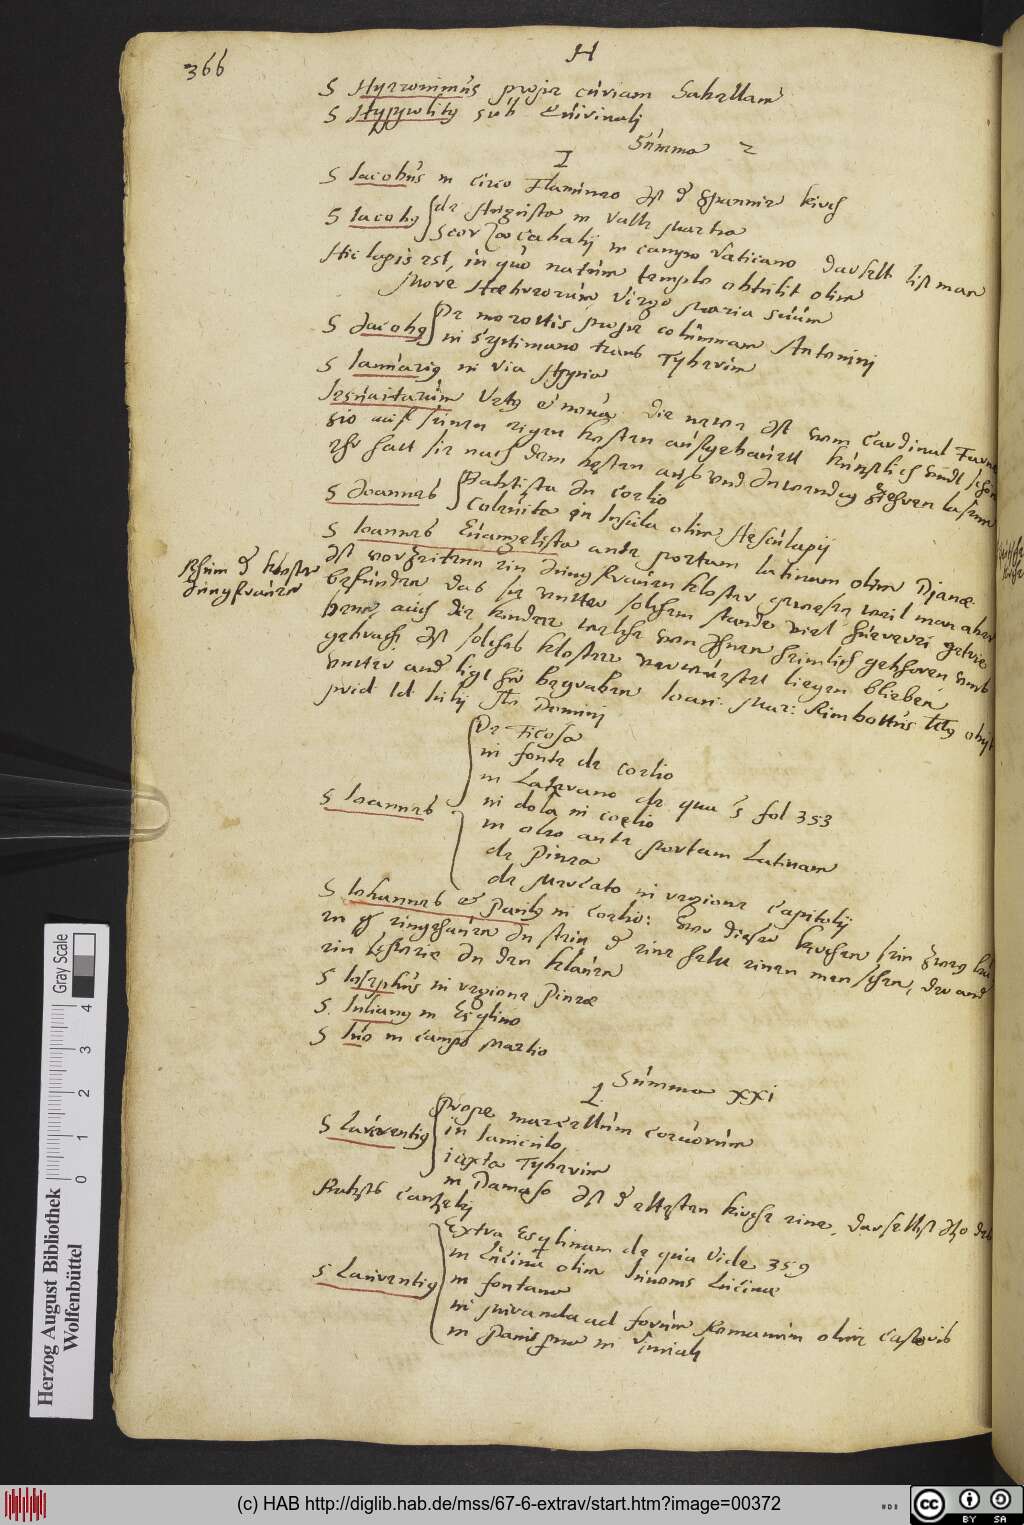 366
H
S Hyeronimus prope curiam Sabellam
S Hyppolitꝰ sub Quirinali
Summa 2
I
S Iacobus in circo Flamineo Ist der Spannier kirch
S Iacobꝰ de Augusta in Valle Martia
Scorzacavalli in campo Vaticano daselbst list man
Hic lapis est, in quo natum templo obtulit olim
More Hæbreorum Virgo Maria suum
S Iacobꝰ De morottis prope columnam Antonini
in Septimano trans Tyberim
S Ianuariꝰ in via Appia
Iesuitarum Vetꝰ et nova die newe Ist vom Cardinal Farne
sio auf seinen eigen kosten außgebauett künstlich undt schön
ehr hatt sie nach dem besten aus und Inwendig zieren lassen
S Ioannes Babtista In coelio
Colavita in Insula olim Aesculapii
S Ioannes Euangelista ante portam latinam olim Djanæ
Ist vorzeitenn ein Jungkfrauen kloster gewesen weil man aber
Rhuin der kloster
Jungkfrauen
befunden das sie unter solchem stande viel hurerei getrie
benn auch die kinder welche von Ihnen heimlich gebohren umb
gebracht Ist solches kloster verwüestet liegen blieben
unter and ligt hir begraben Ioan: Mar: Rimbottus obijt
prid Id Iulij Ao Dominj
S Ioannes De Ficosa
in fonte de coelio
in Laterano de qua s fol 353
in dola in coelio
in oleo ante portam Latinam
de Pinea
de Mercato in regione Capitolij
S Iohannes et Paulꝰ in coelio: vor dieser kirchen sein zweij Leu
en eingehauen In stein der eine helt einen menschen, der and
ein In den klauen
S Iosephus in regione Pineæ
S. Iulianꝰ in Esqlino
S Iuo in campo Martio
Summa xxi
L
S Laurentiꝰ Prope marcellum corvorum
in Ianiculo
iuxta Tyberim
in Damaso Ist der eltesten kirche eine, daselbst Itzo das
Bebsts Cantzelij
S Laurentiꝰ Extra Esqlinam de qua vide 359
in Lucina olim Iunonis Lucinæ
in fontana
in miranda ad forum Romanum olim Castoris
in Panisperna in Viminali
Herzog August Bibliothek
Wolfenbüttel
Gray Scale
0 1 2 3 4
(c) HAB http://diglib.hab.de/mss/67-6-extrav/start.htm?image=00372
cc BY SA